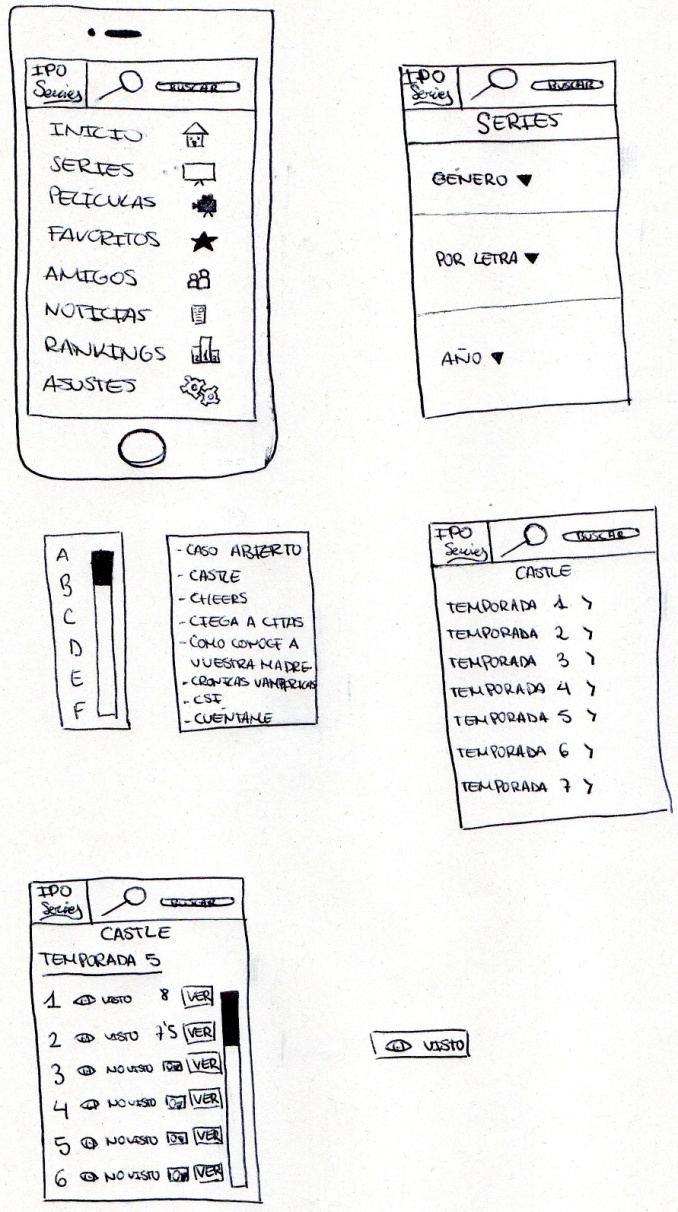 IPO
Series
BUSCAR
INICIO
SERIES
PELÍCULAS
FAVORITOS
AMIGOS
NOTICIAS
RANKINGS
AJUSTES
IPO
Series
BUSCAR
SERIES
GÉNERO ▼
POR LETRA ▼
AÑO ▼
A
B
C
D
E
F
- CASO ABIERTO
- CASTLE
- CHEERS
- CIEGA A CITAS
- COMO CONOCÍ A
VUESTRA MADRE
- CRONICAS VAMPIRICAS
- CSI
- CUÉNTAME
IPO
Series
BUSCAR
CASTLE
TEMPORADA 1 >
TEMPORADA 2 >
TEMPORADA 3 >
TEMPORADA 4 >
TEMPORADA 5 >
TEMPORADA 6 >
TEMPORADA 7 >
IPO
Series
BUSCAR
CASTLE
TEMPORADA 5
1 VISTO 8 VER
2 VISTO 7'5 VER
3 NO VISTO VER
4 NO VISTO VER
5 NO VISTO VER
6 NO VISTO VER
VISTO